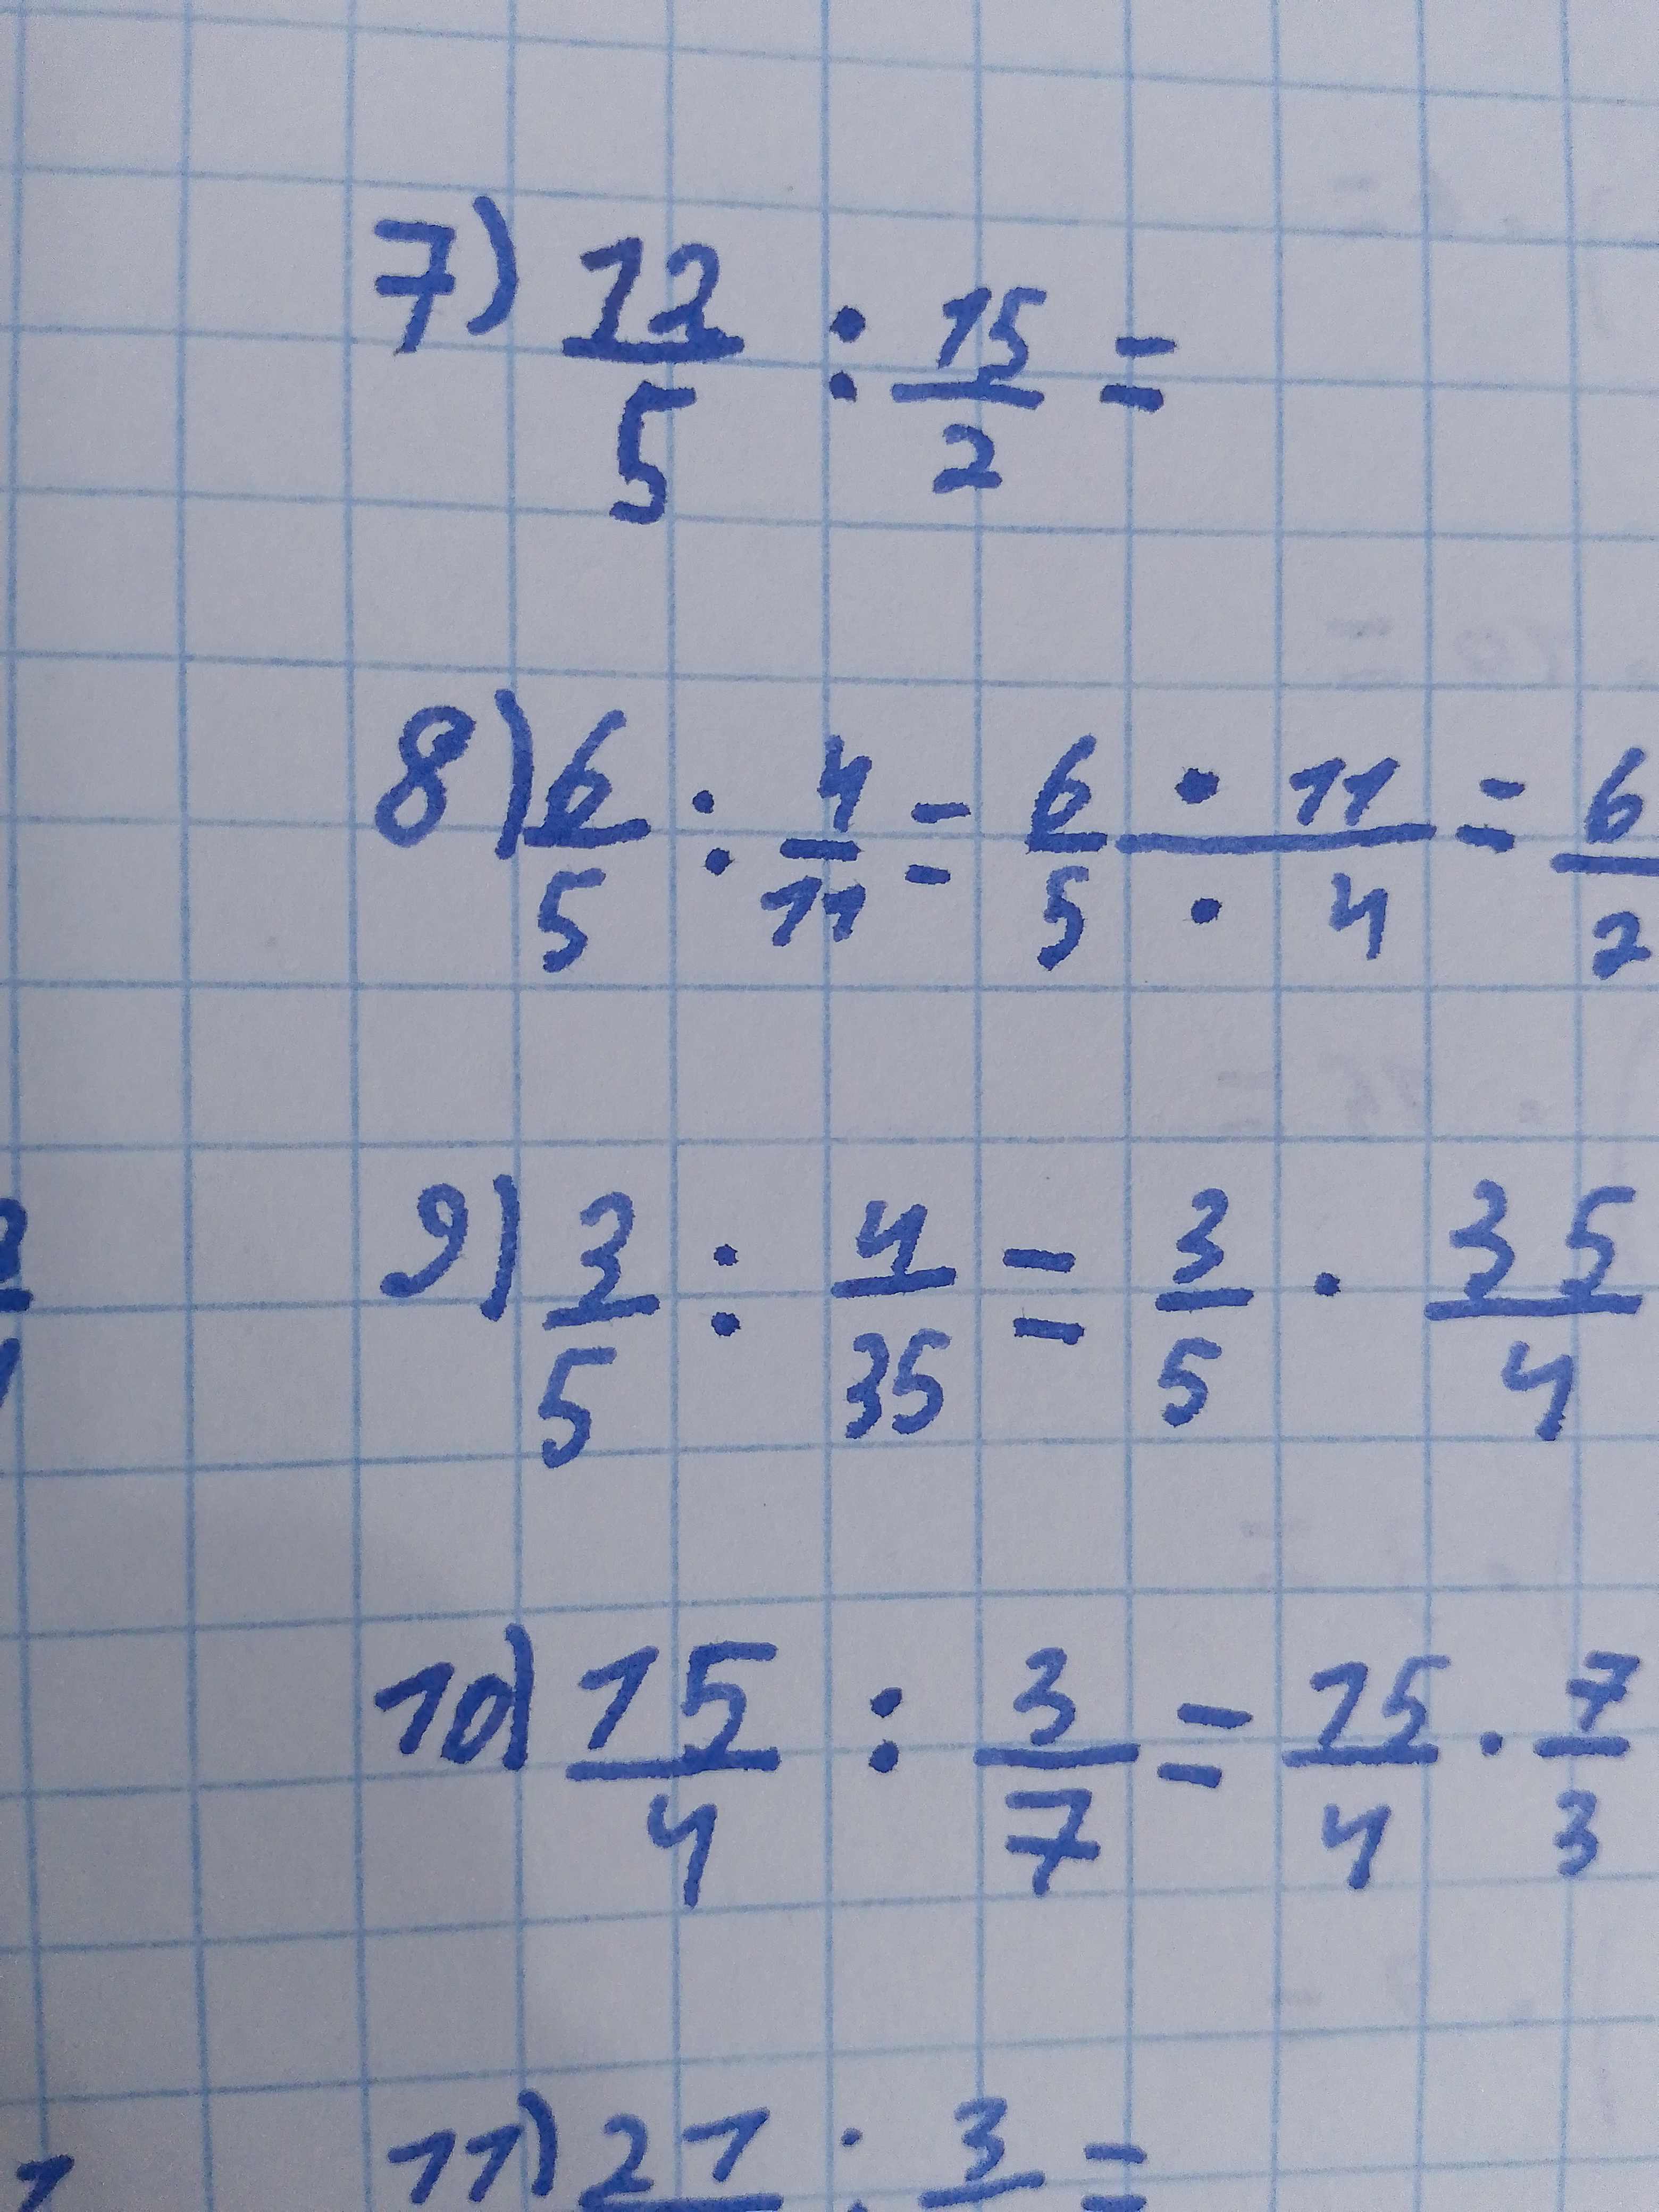 7) 12/5 : 15/2 =
8) 6/5 : 4/11 = 6/5 · 11/4 = 6/2
9) 3/5 : 4/35 = 3/5 · 35/4
10) 15/4 : 3/7 = 15/4 · 7/3
11) 21 : 3 =